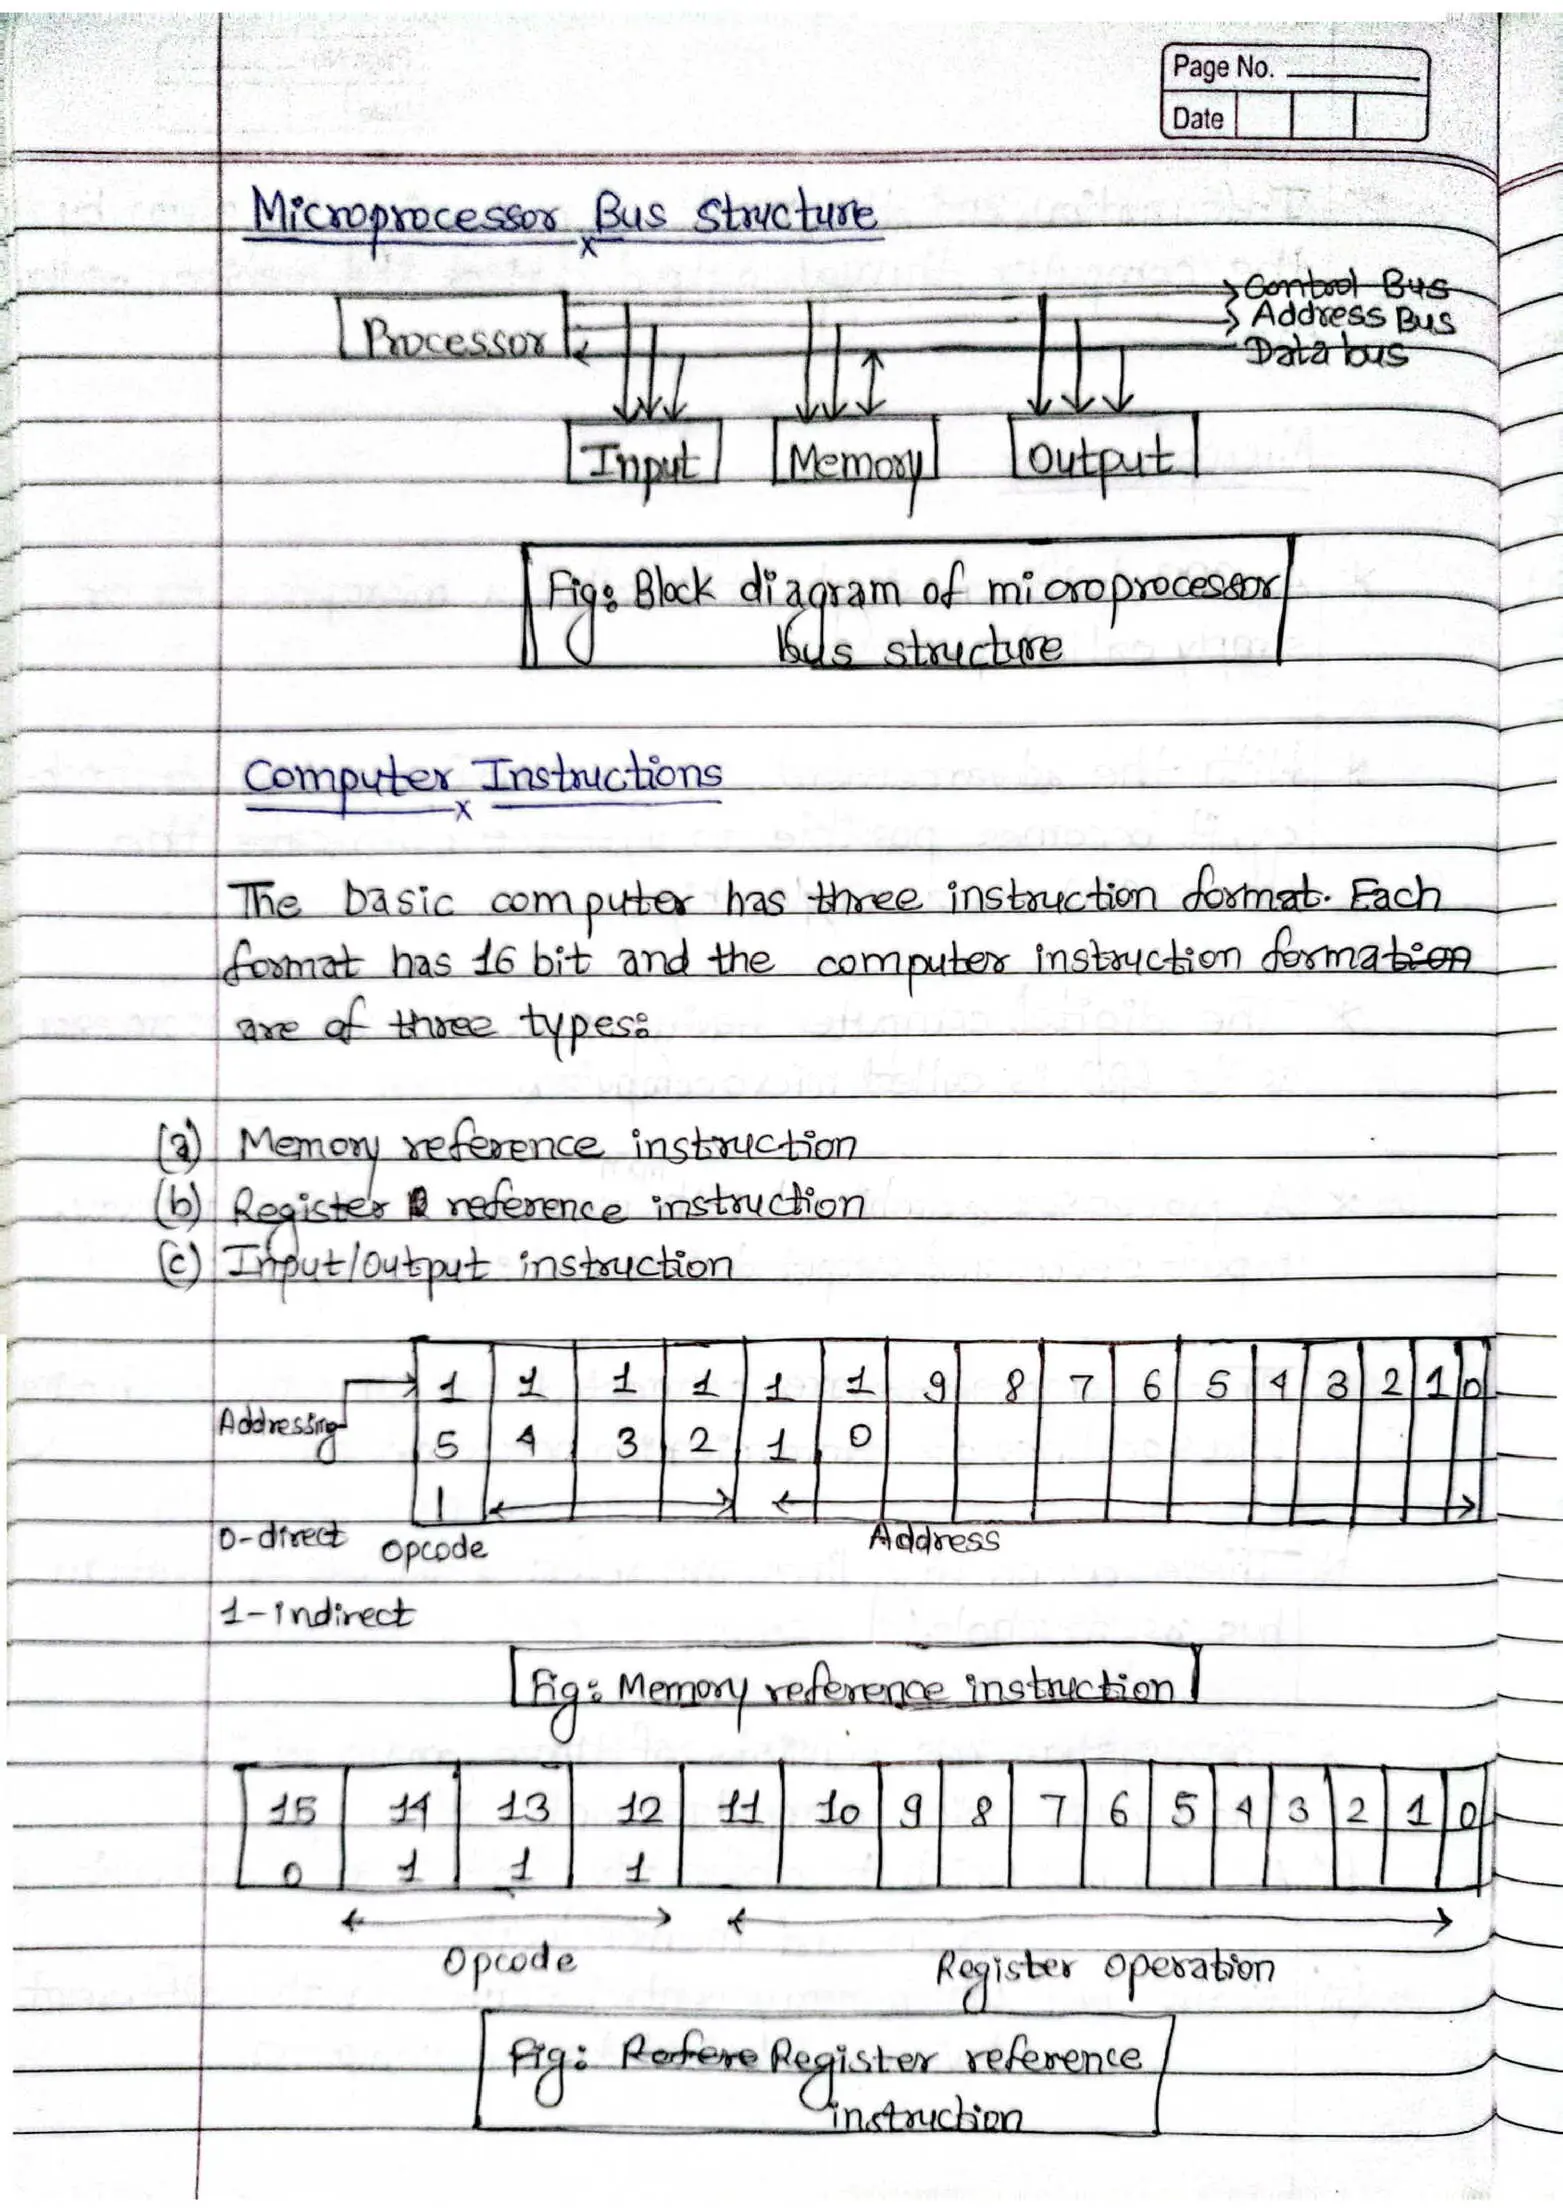 Page No.
Date
Microprocessor Bus Structure
x
Control Bus
Address Bus
Data bus
Processor
Input Memory Output
Fig: Block diagram of microprocessor
bus structure
Computer Instructions
x
The basic computer has three instruction format. Each
format has 16 bit and the computer instruction formation
are of three types:
(a) Memory reference instruction
(b) Register reference instruction
(c) Input/Output instruction
1 1 1 1 1 1 9 8 7 6 5 4 3 2 1 0
Addressing
5 4 3 2 1 0
I
0-direct Opcode Address
1-indirect
Fig: Memory reference instruction
15 14 13 12 11 10 9 8 7 6 5 4 3 2 1 0
0 1 1 1
Opcode Register operation
Fig: Refere Register reference
instruction